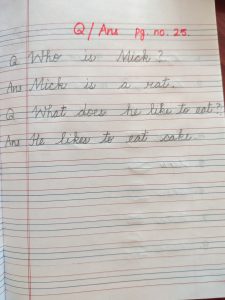 Q / Ans pg. no. 25.
Q Who is Mick?
Ans Mick is a rat.
Q What does he like to eat?
Ans He likes to eat cake.